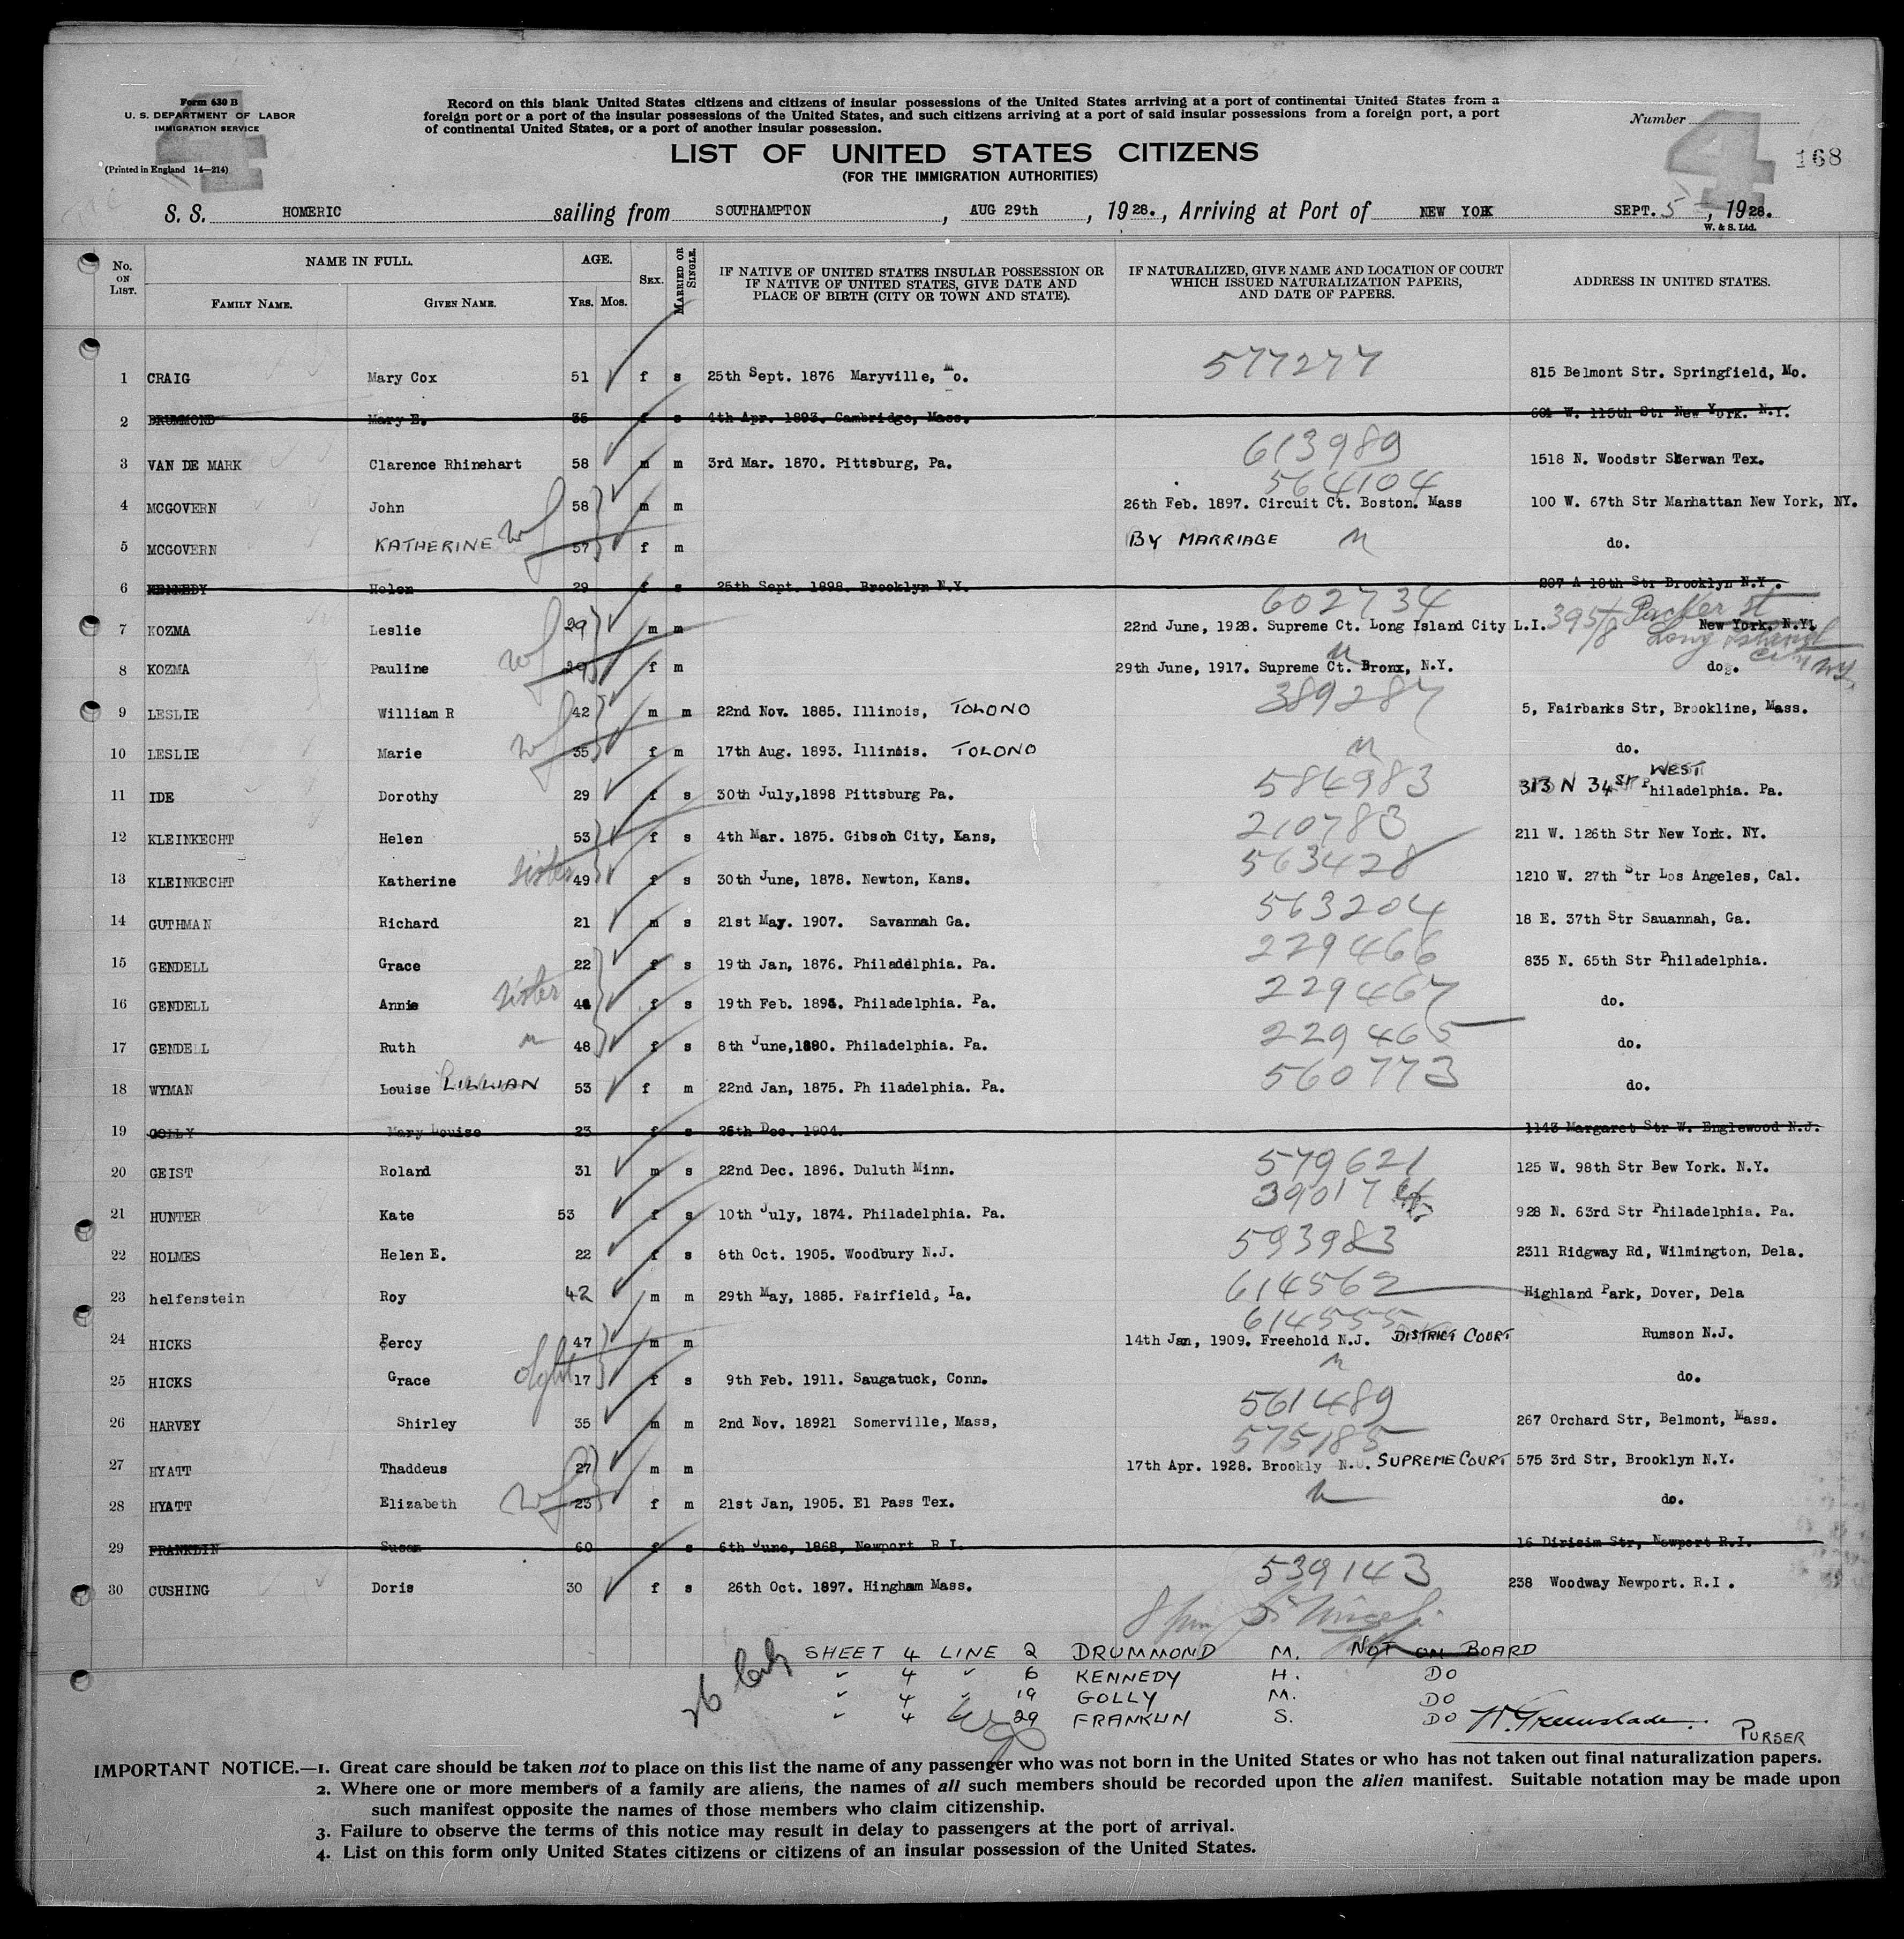 Form 630 B
U. S. DEPARTMENT OF LABOR
IMMIGRATION SERVICE
(Printed in England 14—214)
4
Record on this blank United States citizens and citizens of insular possessions of the United States arriving at a port of continental United States from a
foreign port or a port of the insular possessions of the United States, and such citizens arriving at a port of said insular possessions from a foreign port, a port
of continental United States, or a port of another insular possession.
LIST OF UNITED STATES CITIZENS
(FOR THE IMMIGRATION AUTHORITIES)
Number
4
168
S. S. HOMERIC sailing from SOUTHAMPTON, AUG 29th, 1928., Arriving at Port of NEW YORK SEPT. 5, 1928.
W. & S. Ltd.
No. ON LIST. NAME IN FULL. FAMILY NAME. GIVEN NAME. AGE. YRS. MOS. SEX. MARRIED OR SINGLE. IF NATIVE OF UNITED STATES INSULAR POSSESSION OR IF NATIVE OF UNITED STATES, GIVE DATE AND PLACE OF BIRTH (CITY OR TOWN AND STATE). IF NATURALIZED, GIVE NAME AND LOCATION OF COURT WHICH ISSUED NATURALIZATION PAPERS, AND DATE OF PAPERS. ADDRESS IN UNITED STATES.
1 CRAIG Mary Cox 51 f s 25th Sept. 1876 Maryville, Mo. 577277 815 Belmont Str. Springfield, Mo.
2 DRUMMOND Mary E. 35 f s 4th Apr. 1893. Cambridge, Mass. 601 W. 115th Str New York. N.Y.
3 VAN DE MARK Clarence Rhinehart 58 m m 3rd Mar. 1870. Pittsburg, Pa. 613989 1518 N. Woodstr Sherwan Tex.
564104
4 MCGOVERN John 58 m m 26th Feb. 1897. Circuit Ct. Boston. Mass 100 W. 67th Str Manhattan New York, NY.
5 MCGOVERN KATHERINE wf 57 f m BY MARRIAGE do.
6 KENNEDY Helen 29 f s 25th Sept. 1898. Brooklyn N.Y. 207 A 18th Str Brooklyn N.Y.
602734
7 KOZMA Leslie 29 m m 22nd June, 1928. Supreme Ct. Long Island City L.I. New York. N.Y.
395/8 Packer St Long Island City NY.
8 KOZMA Pauline wf 29 f m 29th June, 1917. Supreme Ct. Bronx, N.Y. do.
9 LESLIE William R 42 m m 22nd Nov. 1885. Illinois, TOLONO 389287 5, Fairbanks Str, Brookline, Mass.
10 LESLIE Marie wf 35 f m 17th Aug. 1893. Illinois. TOLONO do.
11 IDE Dorothy 29 f s 30th July,1898 Pittsburg Pa. 584983 313 N 34 St WEST Philadelphia. Pa.
12 KLEINKECHT Helen 53 f s 4th Mar. 1875. Gibson City, Kans, 210783 211 W. 126th Str New York. NY.
13 KLEINKECHT Katherine sister 49 f s 30th June, 1878. Newton, Kans. 563428 1210 W. 27th Str Los Angeles, Cal.
14 GUTHMAN Richard 21 m s 21st May. 1907. Savannah Ga. 563204 18 E. 37th Str Sauannah, Ga.
15 GENDELL Grace 22 f s 19th Jan, 1876. Philadelphia. Pa. 229466 835 N. 65th Str Philadelphia.
16 GENDELL Annie sister f s 19th Feb. Philadelphia. Pa. 229467 do.
17 GENDELL Ruth 48 f s 8th June,1880. Philadelphia. Pa. 229465 do.
18 WYMAN Louise LILLIAN 53 f m 22nd Jan, 1875. Ph iladelphia. Pa. 560773 do.
19 GOLLY Mary Louise 23 f s 26th Dec. 1904. 1143 Margaret Str W. Englewood N.J.
20 GEIST Roland 31 m s 22nd Dec. 1896. Duluth Minn. 579621 125 W. 98th Str Bew York. N.Y.
21 HUNTER Kate 53 f s 10th July, 1874. Philadelphia. Pa. 39017 928 N. 63rd Str Philadelphia. Pa.
22 HOLMES Helen E. 22 f s 8th Oct. 1905. Woodbury N.J. 593983 2311 Ridgway Rd, Wilmington, Dela.
23 helfenstein Roy 42 m m 29th May, 1885. Fairfield, Ia. 614562 Highland Park, Dover, Dela
614555
24 HICKS Percy 47 m m 14th Jan, 1909. Freehold N.J. DISTRICT COURT Rumson N.J.
25 HICKS Grace 17 f s 9th Feb. 1911. Saugatuck, Conn. do.
26 HARVEY Shirley 35 m m 2nd Nov. 18921 Somerville, Mass, 561489 267 Orchard Str, Belmont, Mass.
575185
27 HYATT Thaddeus 27 m m 17th Apr. 1928. Brookly N. SUPREME COURT 575 3rd Str, Brooklyn N.Y.
28 HYATT Elizabeth wf 23 f m 21st Jan, 1905. El Pass Tex. do.
29 FRANKLIN Susan 60 f s 6th June, 1868, Newport R I. 16 Dirisim Str, Newport R.I.
30 CUSHING Doris 30 f s 26th Oct. 1897. Hingham Mass. 539143 238 Woodway Newport. R.I .
SHEET 4 LINE 2 DRUMMOND M. NOT ON BOARD
" 4 " 6 KENNEDY H. DO
" 4 " 19 GOLLY M. DO
" 4 " 29 FRANKLIN S. DO
PURSER
IMPORTANT NOTICE.—1. Great care should be taken not to place on this list the name of any passenger who was not born in the United States or who has not taken out final naturalization papers.
2. Where one or more members of a family are aliens, the names of all such members should be recorded upon the alien manifest. Suitable notation may be made upon
such manifest opposite the names of those members who claim citizenship.
3. Failure to observe the terms of this notice may result in delay to passengers at the port of arrival.
4. List on this form only United States citizens or citizens of an insular possession of the United States.